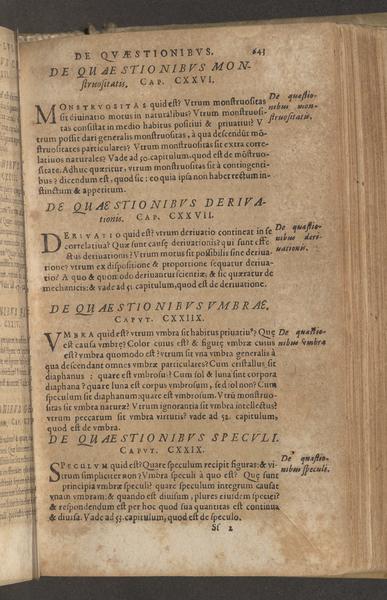 DE QVÆSTIONIBVS. 643
DE QUAESTIONIBVS MON-
struositatis. CAP. CXXVI.
De quæstio-
nibus mon-
struositatis.
MONSTRVOSITAS quid est? Vtrum monstruositas
sit diuinatio motus in naturalibus? Vtrum monstruosi-
tas consistat in medio habitus positiui & priuatiui? V
trum possit dari generalis monstruositas, à qua descendût mō-
struositates particulares? Vtrum monstruositas sit extra corre-
latiuos naturales? Vade ad 50. capitulum, quod est de mōstruo-
sitate. Adhuc quæritur, vtrum monstruositas sit à contingenti-
bus? dicendum est, quod sic: eo quia ipsa non habet rectum in-
stinctum & appetitum.
DE QUAESTIONIBVS DERIVA-
tionis. CAP. CXXVII.
De quæstio-
nibus deri-
uationis.
DERIVATIO quid est? vtrum deriuatio contineat in se
correlatiua? Quæ sunt causæ deriuationis? qui sunt effe
ctus deriuationis? Vtrum motus sit possibilis sine deriua-
tione? vtrum ex dispositione & proportione sequatur deriua-
tio? A quo & quomodo deriuantur scientiæ; & sic quæratur de
mechanicis: & vade ad 51. capitulum, quod est de deriuatione.
DE QUAESTIONIBVS VMBRAE.
CAPVT. CXXIIX.
De quæstio-
nibus vmbræ
VMBRA quid est? vtrum vmbra sit habitus priuatiu9? Quę
est causa vmbrę? Color cuius est? & figurę vmbræ cuius
est? vmbra quomodo est? vtrum sit vna vmbra generalis à
qua descendant omnes vmbræ particulares? Cum cristallus sit
diaphanus: quare est vmbrosus? Cum sol & luna sint corpora
diaphana? quare luna est corpus vmbrosum, sed sol non? Cum
speculum sit diaphanum: quare est vmbrosum. Vtrū monstruo-
sitas sit vmbra naturæ? Vtrum ignorantia sit vmbra intellectus?
vtrum peccatum sit vmbra virtutis? vade ad 52. capitulum,
quod est de vmbra.
DE QUAESTIONIBVS SPECVLI.
CAPVT. CXXIX.
De quæstio-
nibus speculi.
SPECVLVM quid est? Quare speculum recipit figuras: & vi-
strum simpliciter non? Vmbra speculi à quo est? Quę sunt
principia vmbræ speculi? quare speculum integrum causat
vnam vmbram: & quando est diuisum, plures eiusdem speciei?
& respondendum est per hoc quod sua quantitas est continua
& diuisa. Vade ad 53. capitulum, quod est de speculo.
Sf 2